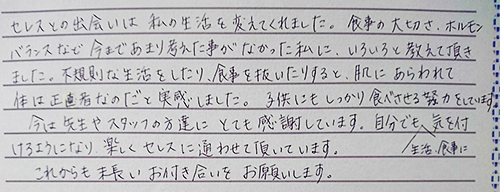 セレスとの出会いは 私の生活を変えてくれました。食事の大切さ、ホルモン
バランスなど今まであまり考えた事がなかった私に、いろいろと教えて頂き
ました。不規則な生活をしたり、食事を抜いたりすると、肌にあらわれて
体は正直者なのだと実感しました。子供にもしっかり食べさせる努力をしています
今は先生やスタッフの方達に とても感謝しています。自分でも、気を付
生活、食事に
けるようになり 楽しくセレスに通わせて頂いています。
これからも末長いお付き合いを お願いします。